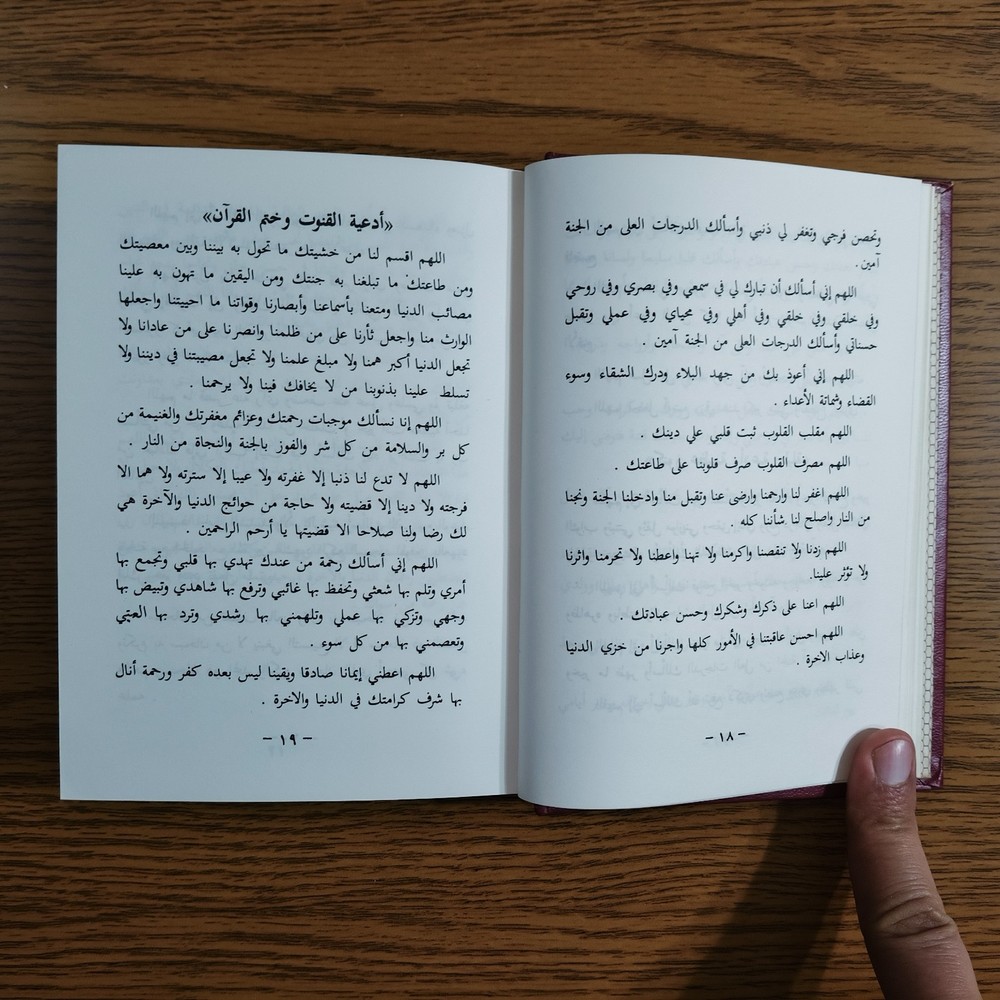 وتحصن فرجي وتغفر لي ذنبي وأسألك الدرجات العلى من الجنة
آمين .
اللهم إني أسألك أن تبارك لي في سمعي وفي بصري وفي روحي
وفي خلقي وفي خلقي وفي أهلي وفي محياي وفي عملي وتقبل
حسناتي وأسألك الدرجات العلى من الجنة آمين .
اللهم إني أعوذ بك من جهد البلاء ودرك الشقاء وسوء
القضاء وشماتة الأعداء .
اللهم مقلب القلوب ثبت قلبي علي دينك .
اللهم مصرف القلوب صرف قلوبنا على طاعتك .
اللهم اغفر لنا وارحمنا وارضى عنا وتقبل منا وادخلنا الجنة ونجنا
من النار واصلح لنا شأننا كله .
اللهم زدنا ولا تنقصنا واكرمنا ولا تهنا واعطنا ولا تحرمنا واثرنا
ولا تؤثر علينا.
اللهم اعنا على ذكرك وشكرك وحسن عبادتك .
اللهم احسن عاقبتنا في الأمور كلها واجرنا من خزي الدنيا
وعذاب الاخرة .
– ١٨ –
«أدعية القنوت وختم القرآن»
اللهم اقسم لنا من خشيتك ما تحول به بيننا وبين معصيتك
ومن طاعتك ما تبلغنا به جنتك ومن اليقين ما تهون به علينا
مصائب الدنيا ومتعنا بأسماعنا وأبصارنا وقواتنا ما احييتنا واجعلها
الوارث منا واجعل ثأرنا على من ظلمنا وانصرنا على من عادانا ولا
تجعل الدنيا أكبر همنا ولا مبلغ علمنا ولا تجعل مصيبتنا في ديننا ولا
تسلط علينا بذنوبنا من لا يخافك فينا ولا يرحمنا .
اللهم إنا نسألك موجبات رحمتك وعزائم مغفرتك والغنيمة من
كل بر والسلامة من كل شر والفوز بالجنة والنجاة من النار .
اللهم لا تدع لنا ذنبا إلا غفرته ولا عيبا إلا سترته ولا هما الا
فرجته ولا دينا إلا قضيته ولا حاجة من حوائج الدنيا والآخرة هي
لك رضا ولنا صلاحا الا قضيتها يا أرحم الراحمين .
اللهم إني أسألك رحمة من عندك تهدي بها قلبي وتجمع بها
أمري وتلم بها شعثي وتحفظ بها غائبي وترفع بها شاهدي وتبيض بها
وجهي وتزكي بها عملي وتلهمني بها رشدي وترد بها العتي
وتعصمني بها من كل سوء .
اللهم اعطني إيمانا صادقا ويقينا ليس بعده كفر ورحمة أنال
بها شرف كرامتك في الدنيا والاخرة .
– ١٩ –